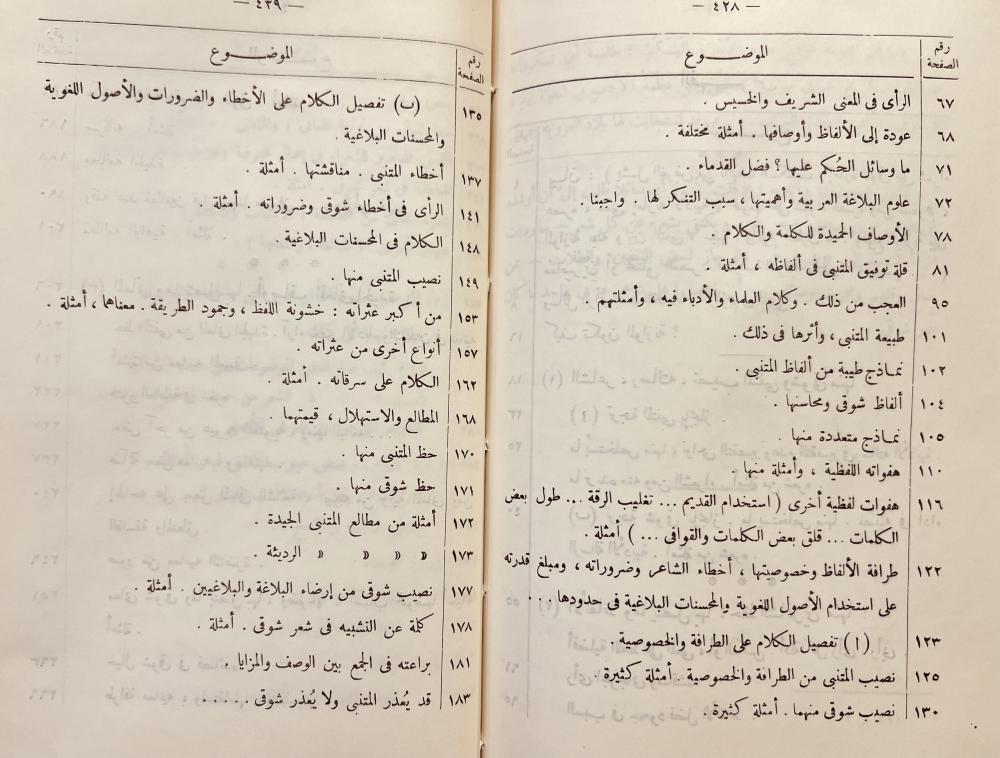 — ٤٢٨ —
رقم الصفحة الموضــوع
٦٧ الرأى فى المعنى الشريف والخسيس .
٦٨ عودة إلى الألفاظ وأوصافها . أمثلة مختلفة .
٧١ ما وسائل الحُكم عليها ؟ فضل القدماء .
٧٢ علوم البلاغة العربية وأهميتها ، سبب التنكر لها . واجبنا .
٧٨ الأوصاف الحميدة للكلمة والكلام .
٨١ قلة توفيق المتنبى فى ألفاظه ، أمثلة .
٩٥ العجب من ذلك . وكلام العلماء والأدباء فيه ، وأمثلتهم .
١٠١ طبيعة المتنبى ، وأثرها فى ذلك .
١٠٢ نماذج طيبة من ألفاظ المتنبى .
١٠٤ ألفاظ شوقى ومحاسنها .
١٠٥ نماذج متعددة منها .
١١٠ هفواته اللفظية ، وأمثلة منها .
١١٦ هفوات لفظية أخرى ( استخدام القديم ... تغليب الرقة ... طول بعض
الكلمات ... قلق بعض الكلمات والقوافى ... ) أمثلة .
١٢٢ طرافة الألفاظ وخصوصيتها ، أخطاء الشاعر وضروراته ، ومبلغ قدرته
على استخدام الأصول اللغوية والمحسنات البلاغية فى حدودها ...
١٢٣ ( ا ) تفصيل الكلام على الطرافة والخصوصية .
١٢٥ نصيب المتنبى من الطرافة والخصوصية . أمثلة كثيرة .
١٣٠ نصيب شوقى منهما . أمثلة كثيرة .
— ٤٣٩ —
رقم الصفحة الموضــوع
١٣٥ (ب) تفصيل الكلام على الأخطاء والضرورات والأصول اللغوية
والمحسنات البلاغية .
١٣٧ أخطاء المتنبى . مناقشتها . أمثلة .
١٤١ الرأى فى أخطاء شوقى وضروراته . أمثلة .
١٤٨ الكلام فى المحسنات البلاغية .
١٤٩ نصيب المتنبى منها .
١٥٣ من أكبر عثراته : خشونة اللفظ ، وجمود الطريقة . معناهما ، أمثلة .
١٥٧ أنواع أخرى من عثراته .
١٦٢ الكلام على سرقاته . أمثلة .
١٦٨ المطالع والاستهلال ، قيمتهما .
١٧٠ حظ المتنبى منها .
١٧١ حظ شوقى منها .
١٧٢ أمثلة من مطالع المتنبى الجيدة .
١٧٣ » » » » الرديئة .
١٧٧ نصيب شوقى من إرضاء البلاغة والبلاغيين . أمثلة .
١٧٨ كلمة عن التشبيه فى شعر شوقى . أمثلة .
١٨١ براعته فى الجمع بين الوصف والمزايا .
١٨٣ قد يُعذر المتنبى ولا يُعذر شوقى . . . . .